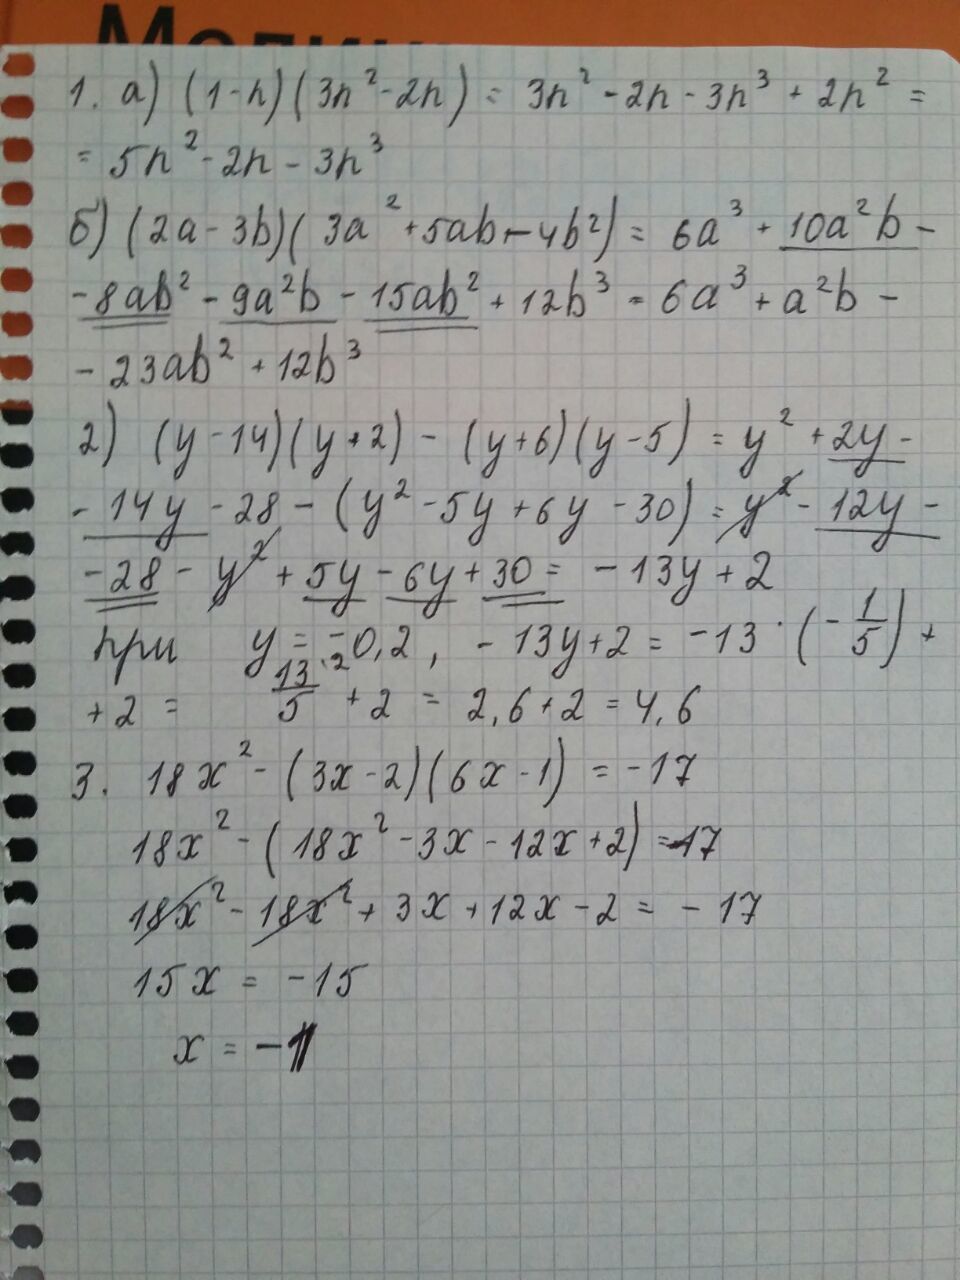 1. а) (1-n)(3n²-2n) = 3n² - 2n - 3n³ + 2n² =
= 5n² - 2n - 3n³
б) (2a - 3b)(3a² + 5ab - 4b²) = 6a³ + 10a²b -
- 8ab² - 9a²b - 15ab² + 12b³ = 6a³ + a²b -
- 23ab² + 12b³
2) (y - 14)(y + 2) - (y+6)(y - 5) = y² + 2y -
- 14y - 28 - (y² - 5y + 6y - 30) = y² - 12y -
- 28 - y² + 5y - 6y + 30 = - 13y + 2
при y = -0,2, - 13y + 2 = -13 · (- 1/5) +
+ 2 = 13·2/5 + 2 = 2,6 + 2 = 4,6
3. 18x² - (3x - 2)(6x - 1) = -17
18x² - (18x² - 3x - 12x + 2) = -17
18x² - 18x² + 3x + 12x - 2 = - 17
15x = -15
x = -1